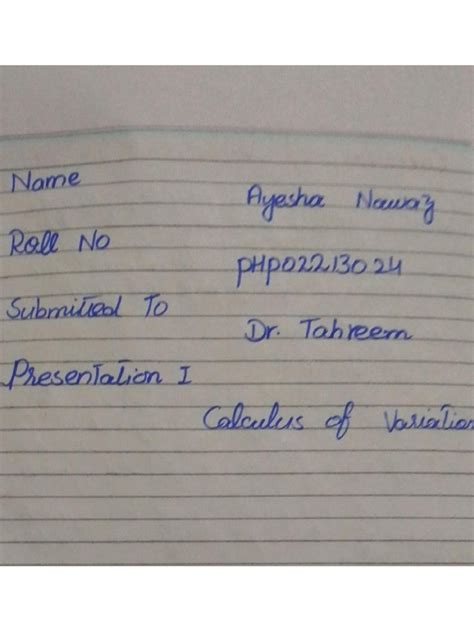 Name
Ayesha Nawaz
Roll No
PHP02213024
Submitted To
Dr. Tahreem
Presentation I
Calculus of Variation